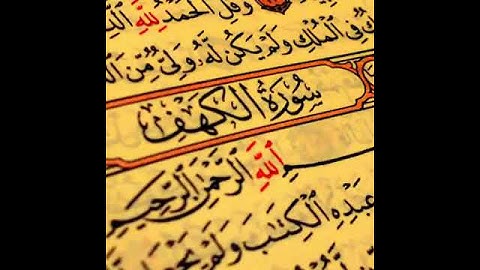 وَقُلِ ٱلْحَمْدُ لِلَّهِ
فِي ٱلْمُلْكِ وَلَمْ يَكُن لَّهُۥ وَلِيٌّ مِّنَ
سُورَةُ الكَهْفِ
ٱللَّهِ ٱلرَّحْمَٰنِ ٱلرَّحِيمِ
عَبْدِهِ ٱلْكِتَٰبَ وَلَمْ